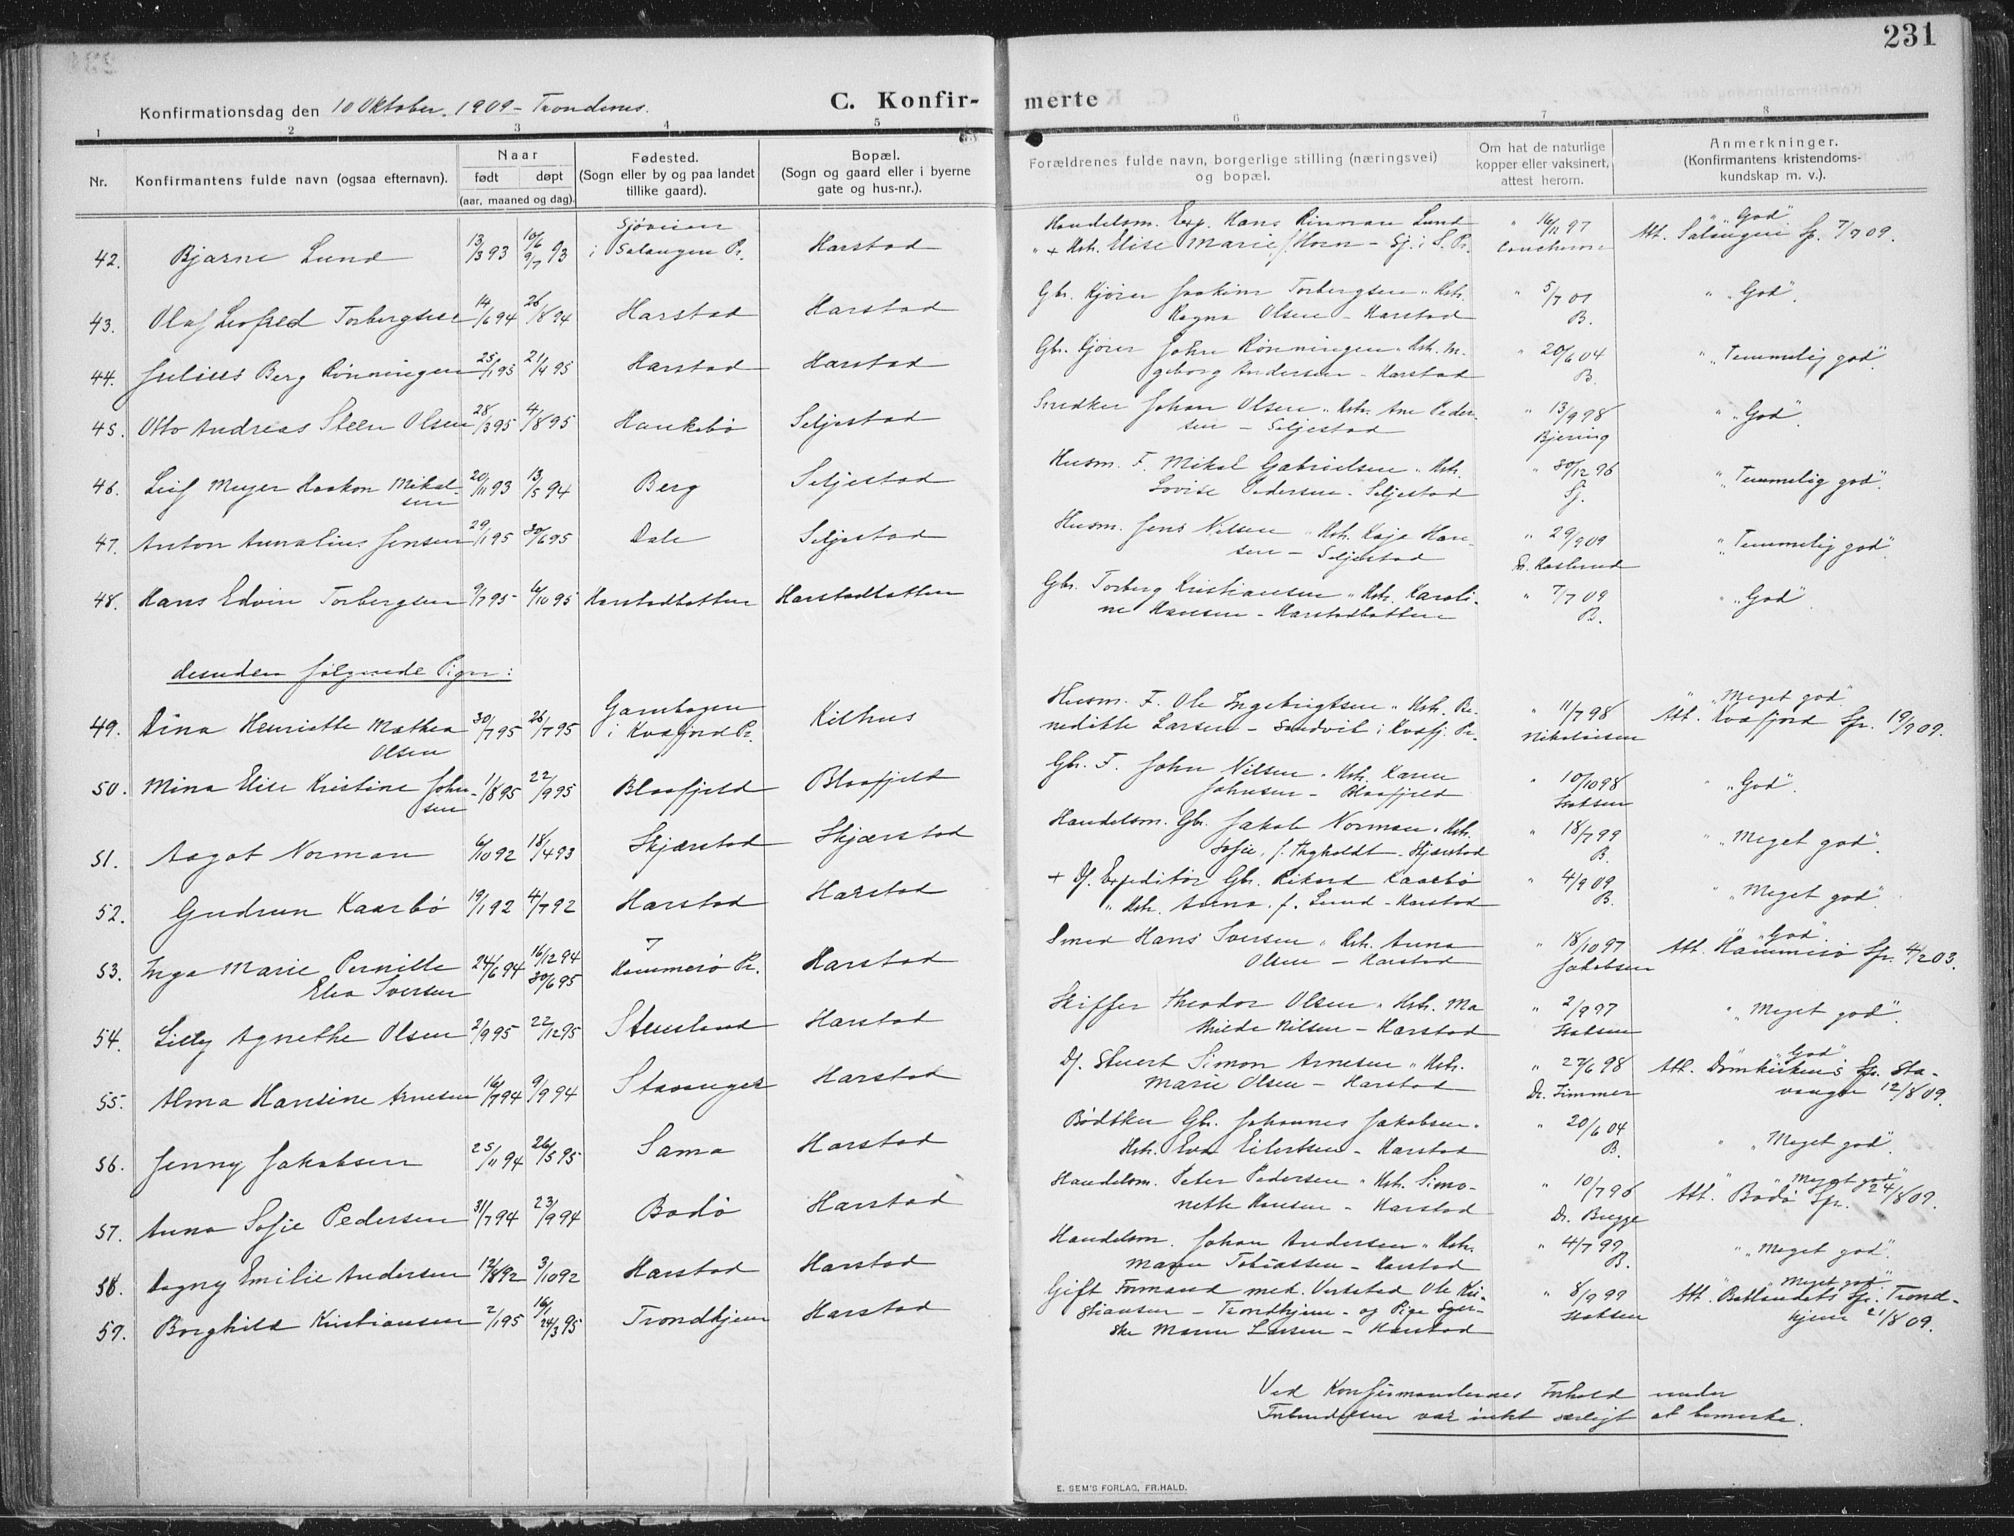 231
Konfirmationsdag den 10 Oktober 1909 – Trondenes.
C. Konfir- merte
1 2 3 4 5 6 7 8
Nr.
Konfirmantens fulde navn (ogsaa efternavn).
Naar
født døpt
(aar, maaned og dag).
Fødested.
(Sogn eller by og paa landet
tillike gaard).
Bopæl.
(Sogn og gaard eller i byerne
gate og hus-nr.).
Forældrenes fulde navn, borgerlige stilling (næringsvei)
og bopæl.
Om hat de naturlige
kopper eller vaksinert,
attest herom.
Anmerkninger.
(Konfirmantens kristendoms-
kundskap m. v.).
42. Bjarne Lund 13/3 93 10/6 9/7 93 Sjøveien i Salangen Pr. Harstad
Handelsm. Exp. Hans Rinman Lund
" + Hstr. Elise Marie, f. Horn – Sj. i S. Pr.
" 16/12 97
" "God"
Att. Salangen Sp. 7/7 09.
43. Olaf Leofred Torbergsen 14/6 94 26/8 94 Harstad Harstad
Gbr. Kjører Joakim Torbergsen " Hstr.
Ragna Olsen – Harstad
" 5/7 01
B.
" "God".
44. Julius Berg Rønningen 25/1 95 21/4 95 Harstad Harstad
Gbr. Kjører John Rønningen " Hstr. In-
geborg Andersen – Harstad
" 20/6 04
B.
" "Temmelig god".
45. Otto Andreas Steen Olsen 28/3 95 4/8 95 Haukebø Seljestad
Snedker Johan Olsen " Hstr. Ane Peder-
sen – Seljestad
" 13/9 98
Bjering
" "God".
46. Leif Meyer Haakon Mikal-
sen 20/11 93 13/5 94 Berg Seljestad
Husm. F. Mikal Gabrielsen " Hstr.
Lovise Pedersen – Seljestad
" 30/12 96
Sj.
" "Temmelig god".
47. Anton Annanius Jensen 29/1 95 30/6 95 Dale Seljestad
Husm. Jens Nilsen " Hstr. Kaja Han-
sen – Seljestad
" 29/9 09
"Temmelig god".
48. Hans Edvin Torbergsen 9/7 95 6/10 95 Harstadbotten Harstadbotten
Gbr. Torberg Kristiansen " Hstr. Karoli-
ne Hansen – Harstadbotten
" 7/7 09
B.
" "God".
desuden følgende Piger:
49. Dina Henriette Mathea
Olsen 30/7 95 26/7 95 i Kvæfjord Pr. Kilhus
Husm. F. Ole Ingebrigtsen " Hstr. Be-
nedikte Larsen – Sandvik i Kvæfj. Pr.
" 11/7 98
Nikolaisen
" "Meget god"
Att. Kvæfjord Sp. 19/9 09.
50. Mina Elise Kristine John-
sen 1/8 95 22/9 95 Blaafjeld Blaafjeld
Gbr. F. John Nilsen " Hstr. Karen
Johnsen – Blaafjeld
" 10/10 98
" "God".
51. Aagot Norman 6/10 92 18/4 93 Skjærstad Skjærstad
Handelsm. Gbr. Jakob Norman " Hstr.
Sofie, f. Thyholdt – Skjærstad
" 18/7 99
B.
" "Meget god".
52. Gudrun Kaarbø 19/1 92 4/7 92 Harstad Harstad
+ Df. Expeditør Gbr. Rikard Kaarbø
" Hstr. Anna, f. Lund – Harstad
" 4/9 09
B.
" "Meget god".
53. Inga Marie Pernille
Elea Iversen 24/6 94 16/12 94 30/6 95 Hammerø Pr. Harstad
Smed Hans Iversen " Hstr. Anna
Olsen – Harstad
" 18/10 97
Jakobsen
" "God".
Att. Hammerø Sp. 4/2 03.
54. Lilly Agnethe Olsen 2/9 95 22/12 95 Stensland Harstad
Skipper Theodor Olsen " Hstr. Ma
thilde Nilsen – Harstad
" 2/9 97
" "Meget god".
55. Alma Hansine Arnesen 16/7 94 9/9 94 Stavanger Harstad
Df. Stuert Simon Arnesen " Hstr.
Marie Olsen – Harstad
" 27/6 98
Dr. Timmer
" "God"
Att. Domkirkens Sp. Sta-
vanger 12/8 09.
56. Jenny Jakobsen 25/11 94 26/5 95 Sama Harstad
Bødtker Gbr. Johannes Jakobsen "
Hstr. Eva Eilertsen – Harstad
" 20/6 04
B.
" "Meget god".
57. Anna Sofie Pedersen 31/7 94 23/9 94 Bodø Harstad
Handelsm. Peter Pedersen " Hstr. Simo-
nette Hansen – Harstad
" 10/7 96
Dr. Bugge
" "Meget god"
Att. Bodø Sp. 24/8 09.
58. Dagny Emilie Andersen 12/8 92 3/10 92 Harstad Harstad
Handelsm. Johan Andersen " Hstr.
Maren Tobiassen – Harstad
" 4/7 99
B.
" "Meget god".
59. Borghild Kristiansen 2/1 95 16/1 24/3 95 Trondhjem Harstad
Gift Formand med. Verksted Ole Kri-
stiansen – Trondhjem – og Pige Syer-
ske Maren Larsen – Harstad
" 8/9 99
" "Meget god".
Att. Baklandets Sp. Trond-
hjem 21/8 09.
Ved Konfirmandernes Forhold under
Forberedelsen var intet særligt at bemerke.
E. SEM'S FORLAG, FR.HALD.